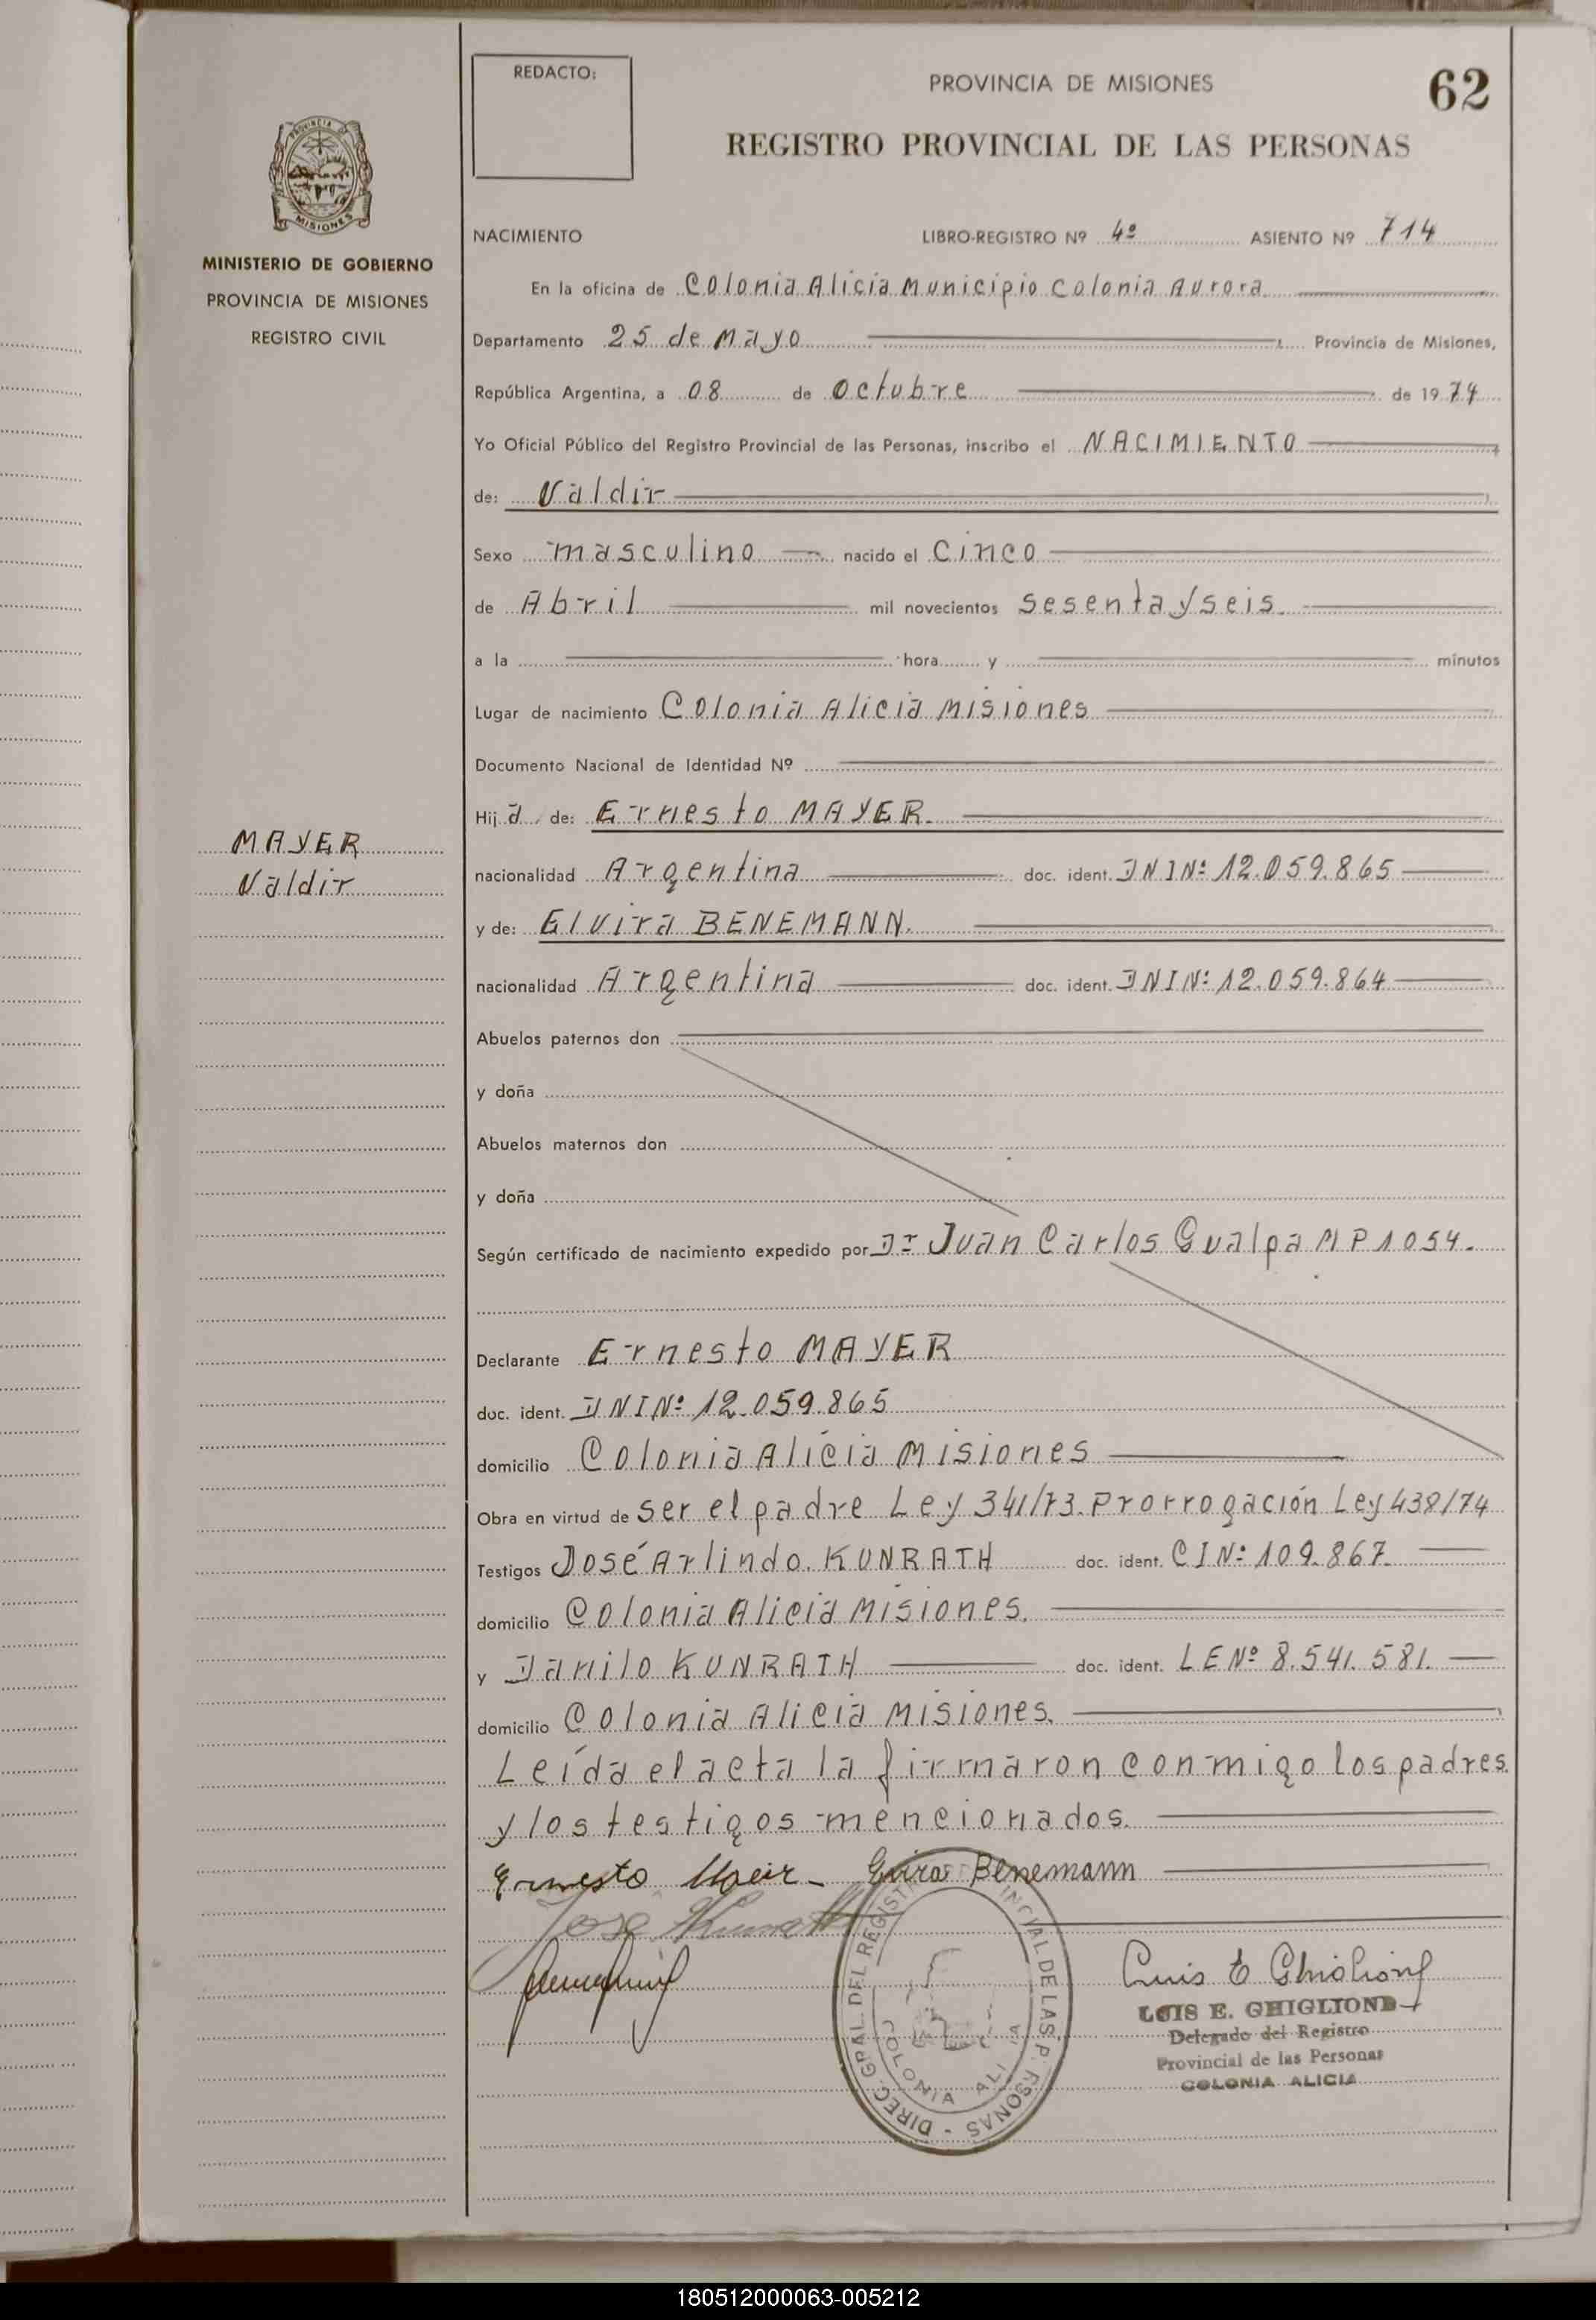 REDACTO:
PROVINCIA DE MISIONES
62
REGISTRO PROVINCIAL DE LAS PERSONAS
PROVINCIA DE
MISIONES
MINISTERIO DE GOBIERNO
PROVINCIA DE MISIONES
REGISTRO CIVIL
NACIMIENTO LIBRO-REGISTRO Nº 4º ASIENTO Nº 714
En la oficina de Colonia Alicia Municipio Colonia Aurora
Departamento 25 de Mayo Provincia de Misiones,
República Argentina, a 08 de Octubre de 1974
Yo Oficial Público del Registro Provincial de las Personas, inscribo el NACIMIENTO
de: Valdir
Sexo masculino nacido el Cinco
de Abril mil novecientos Sesenta y seis.
a la hora y minutos
Lugar de nacimiento Colonia Alicia Misiones
Documento Nacional de Identidad Nº
Hija de: Ernesto MAYER.
MAYER
Valdir
nacionalidad Argentina doc. ident. DNI Nº 12.059.865
y de: Elvira BENEMANN.
nacionalidad Argentina doc. ident. DNI Nº 12.059.864
Abuelos paternos don
y doña
Abuelos maternos don
y doña
Según certificado de nacimiento expedido por Dr Juan Carlos Gualpa MP 1054.
Declarante Ernesto MAYER
doc. ident. DNI Nº 12.059.865
domicilio Colonia Alicia Misiones
Obra en virtud de ser el padre Ley 341/73. Prorrogación Ley 438/74
Testigos José Arlindo KUNRATH doc. ident. CI Nº 109.867
domicilio Colonia Alicia Misiones.
y Danilo KUNRATH doc. ident. LE Nº 8.541.581.
domicilio Colonia Alicia Misiones.
Leída el acta la firmaron conmigo los padres
y los testigos mencionados.
Ernesto Maeir Evira Benemann
Jose Kunrath
Luis E Ghiglione
LUIS E. GHIGLIONE
Delegado del Registro
Provincial de las Personas
COLONIA ALICIA
DIREC. GRAL DEL REGIST PROVINCIAL DE LAS PERSONAS
COLONIA ALICIA
180512000063-005212